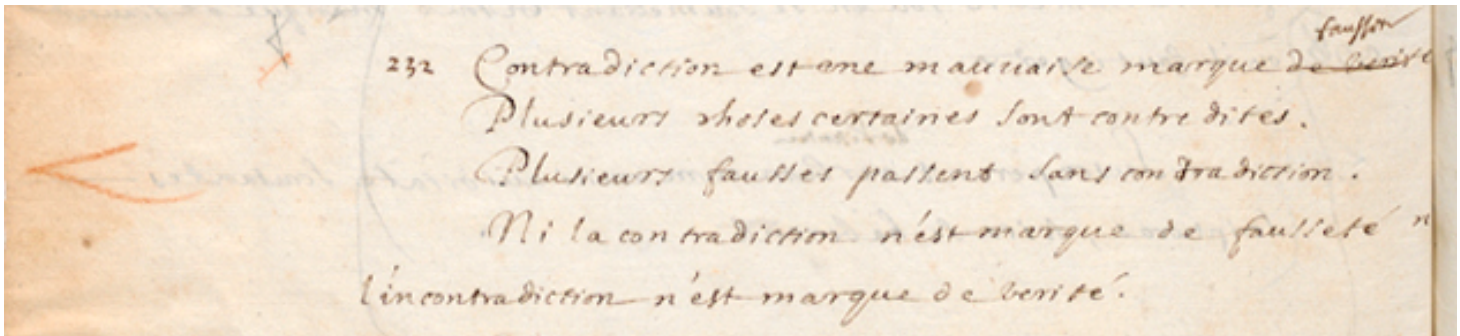 fausset
232 Contradiction est une mauvaise marque de verité
Plusieurs choses certaines sont contredites.
Plusieurs fausses passent sans contradiction.
Ni la contradiction n'est marque de fausseté n
l'incontradiction n'est marque de verité.